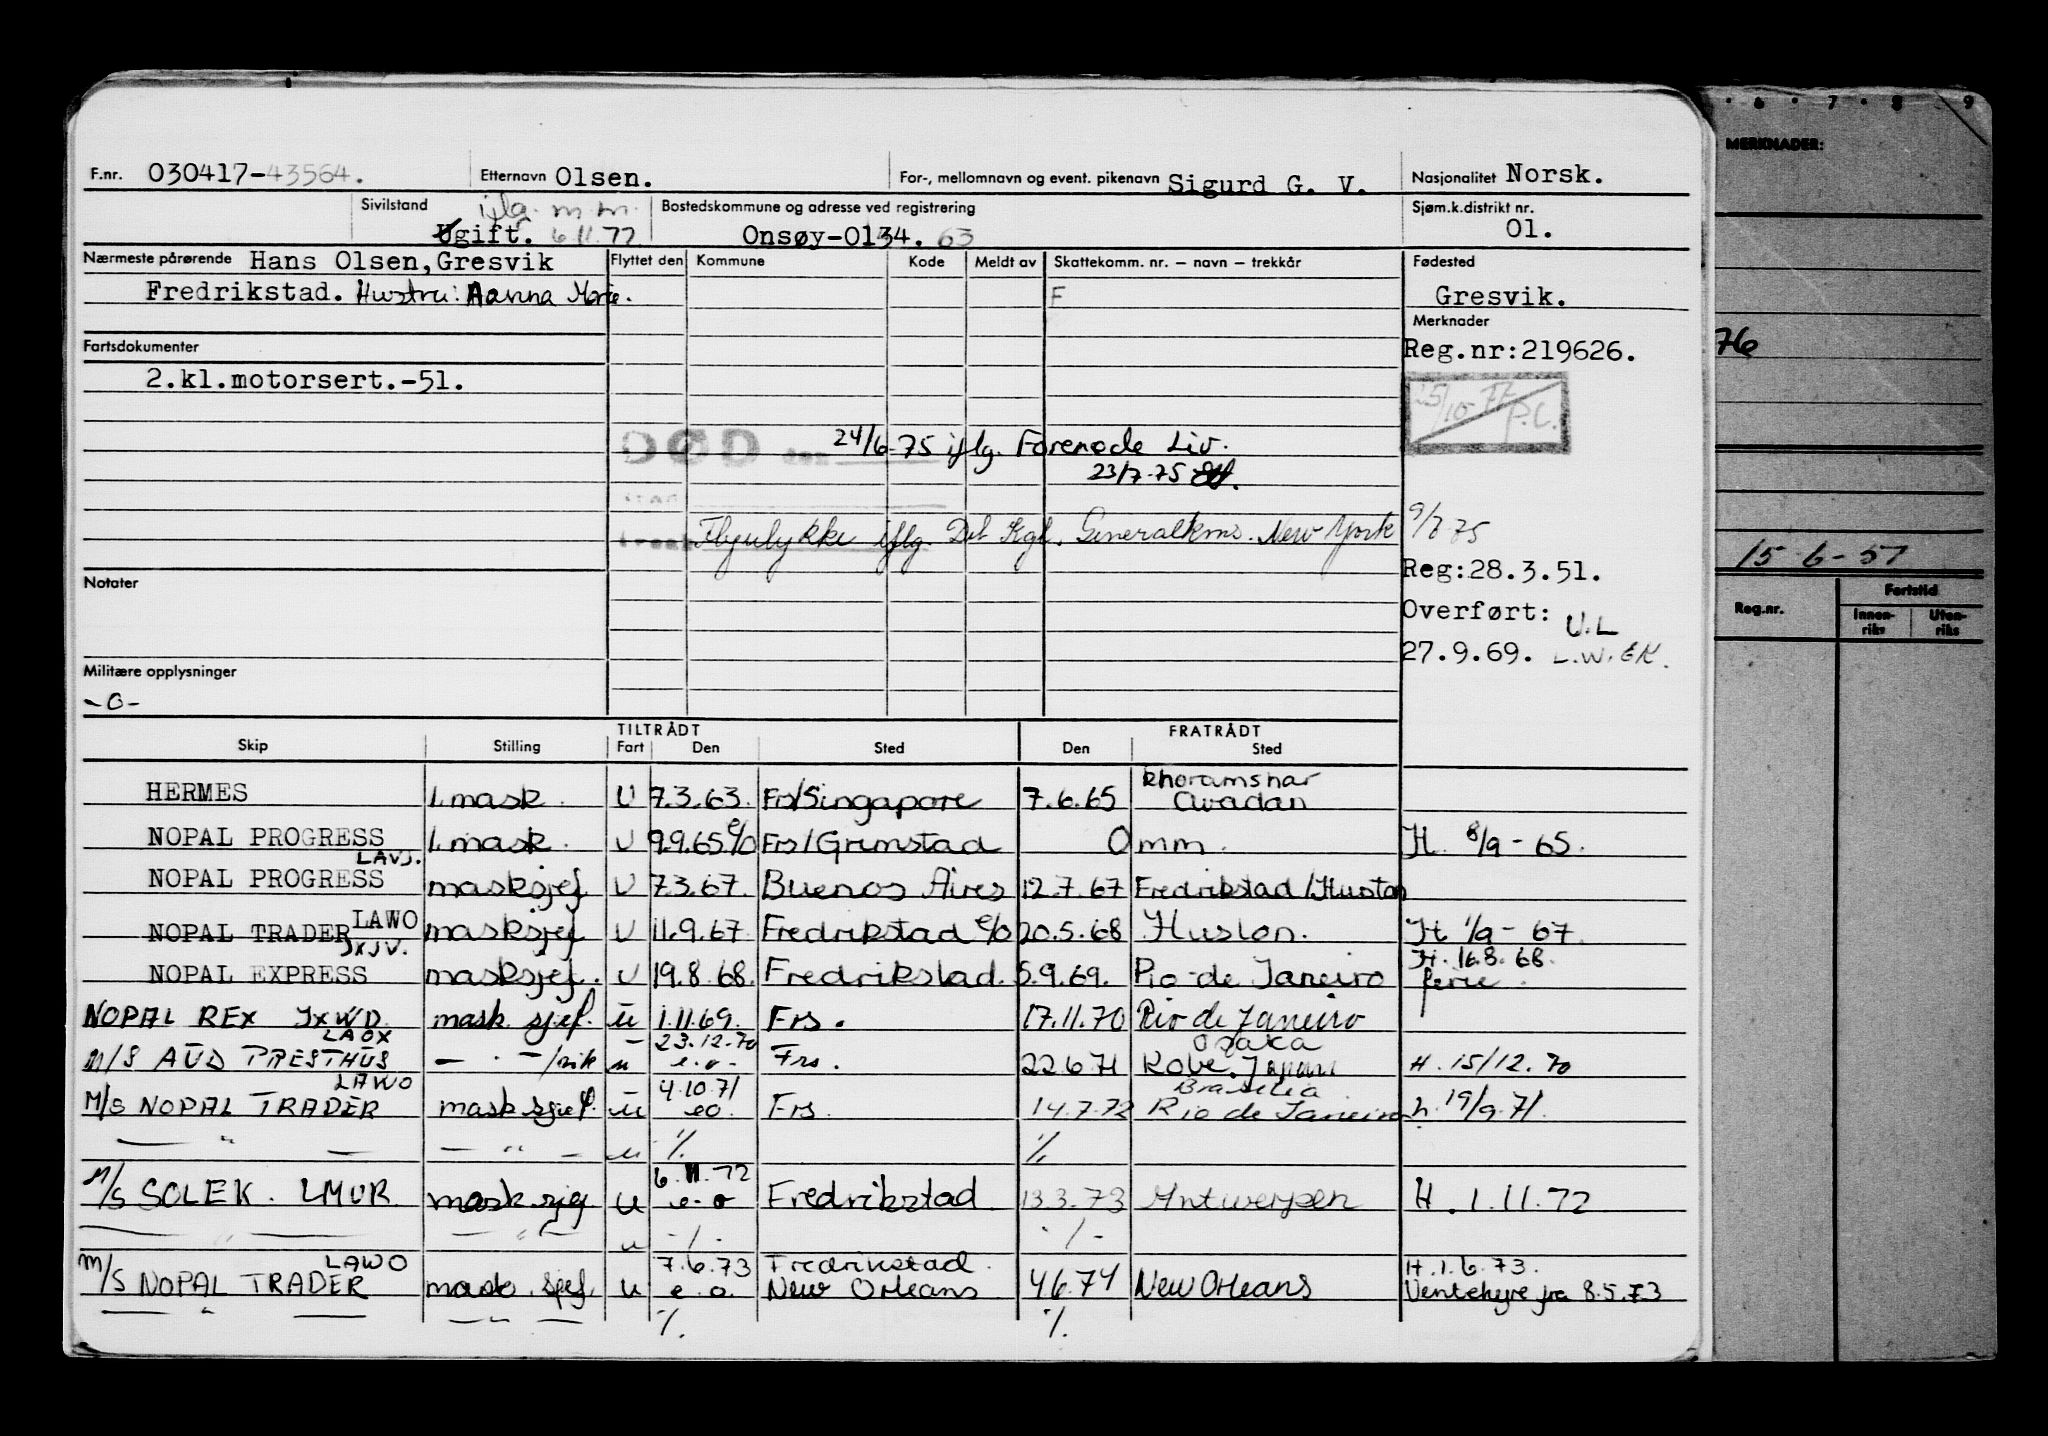 F.nr. 030417-43564. Etternavn Olsen. For-, mellomnavn og event. pikenavn Sigurd G. V. Nasjonalitet Norsk.
Sivilstand iflg. m.m. Bostedskommune og adresse ved registrering Sjøm.k.distrikt nr.
Ugift. 6.11.72 Onsøy-0134. 63 01.
Nærmeste pårørende Hans Olsen, Gresvik Flyttet den Kommune Kode Meldt av Skattekomm. nr. – navn – trekkår Fødested
Fredrikstad. Hustru: Marie. F Gresvik.
Merknader
Fartsdokumenter Reg.nr:219626.
2.kl.motorsert.-51.
25/10-77 P.L.
DØD den 24/6-75 iflg. Forenede Liv.
23/7-75
Flyulykke iflg. Det Kgl. Generalkons. New York 9/7 75
Reg:28.3.51.
Notater
Overført: U.L
27.9.69. L.W. EK.
Militære opplysninger
-0-
TILTRÅDT FRATRÅDT
Skip Stilling Fart Den Sted Den Sted
HERMES 1.mask. U 7.3.63. Frs/Singapore 7.6.65 Khoramshar
NOPAL PROGRESS 1.mask. U 9.9.65 e/o Frs/Grimstad 0 mm. H. 8/9-65.
LAVJ.
NOPAL PROGRESS masksjef U 7.3.67. Buenos Aires 12.7.67 Fredrikstad/Huston
NOPAL TRADER LAWO masksjef U 11.9.67. Fredrikstad e/o 20.5.68 Huston. H 1/9-67.
JXJV. H. 16.8.68.
NOPAL EXPRESS masksjef. U 19.8.68. Fredrikstad. 5.9.69. Rio-de Janeiro ferie.
NOPAL REX JXWD mask.sjef. u 1.11.69. Frs. 17.11.70 Rio de Janeiro
LAOX 23.12.70 Osaka
M/S AUD PRESTHUS — " — u e.o- Frs. 22.6.71 Kobe. Japan H. 15/12.70
LAWO 4.10.71 Brasilia
M/S NOPAL TRADER mask sjef. u eo. Frs. 14.7.72 Rio de Janeiro h. 19/9.71.
— " — — " — u ./. ./.
6.11.72
M/S SOLEK. LMUR mask.sjef u e-o Fredrikstad 13.3.73 Antwerpen H. 1.11.72
— " — — " — u -/- -/-
LAWO 7.6.73 Fredrikstad. H.1.6.73.
M/S NOPAL TRADER mask.sjef. u e.o. New Orleans 4.6.74 New Orleans Ventehyre fra 8.5.73
— " — — " — ./. ./.
6 7 8 9
MERKNADER:
76
15-6-51
Reg.nr. Fartstid
Innen-riks Uten-riks